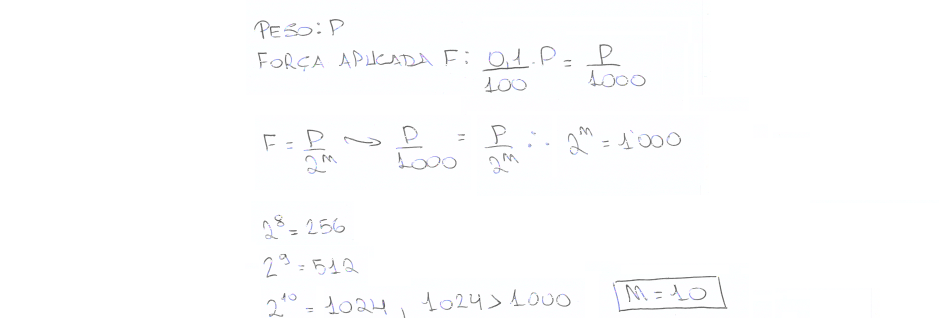 PESO: P
FORÇA APLICADA F: 0,1/100 . P = P/1000
F = P/2^m ⤳ P/1000 = P/2^m ∴ 2^m = 1000
2^8 = 256
2^9 = 512
2^10 = 1024, 1024 > 1000 M = 10